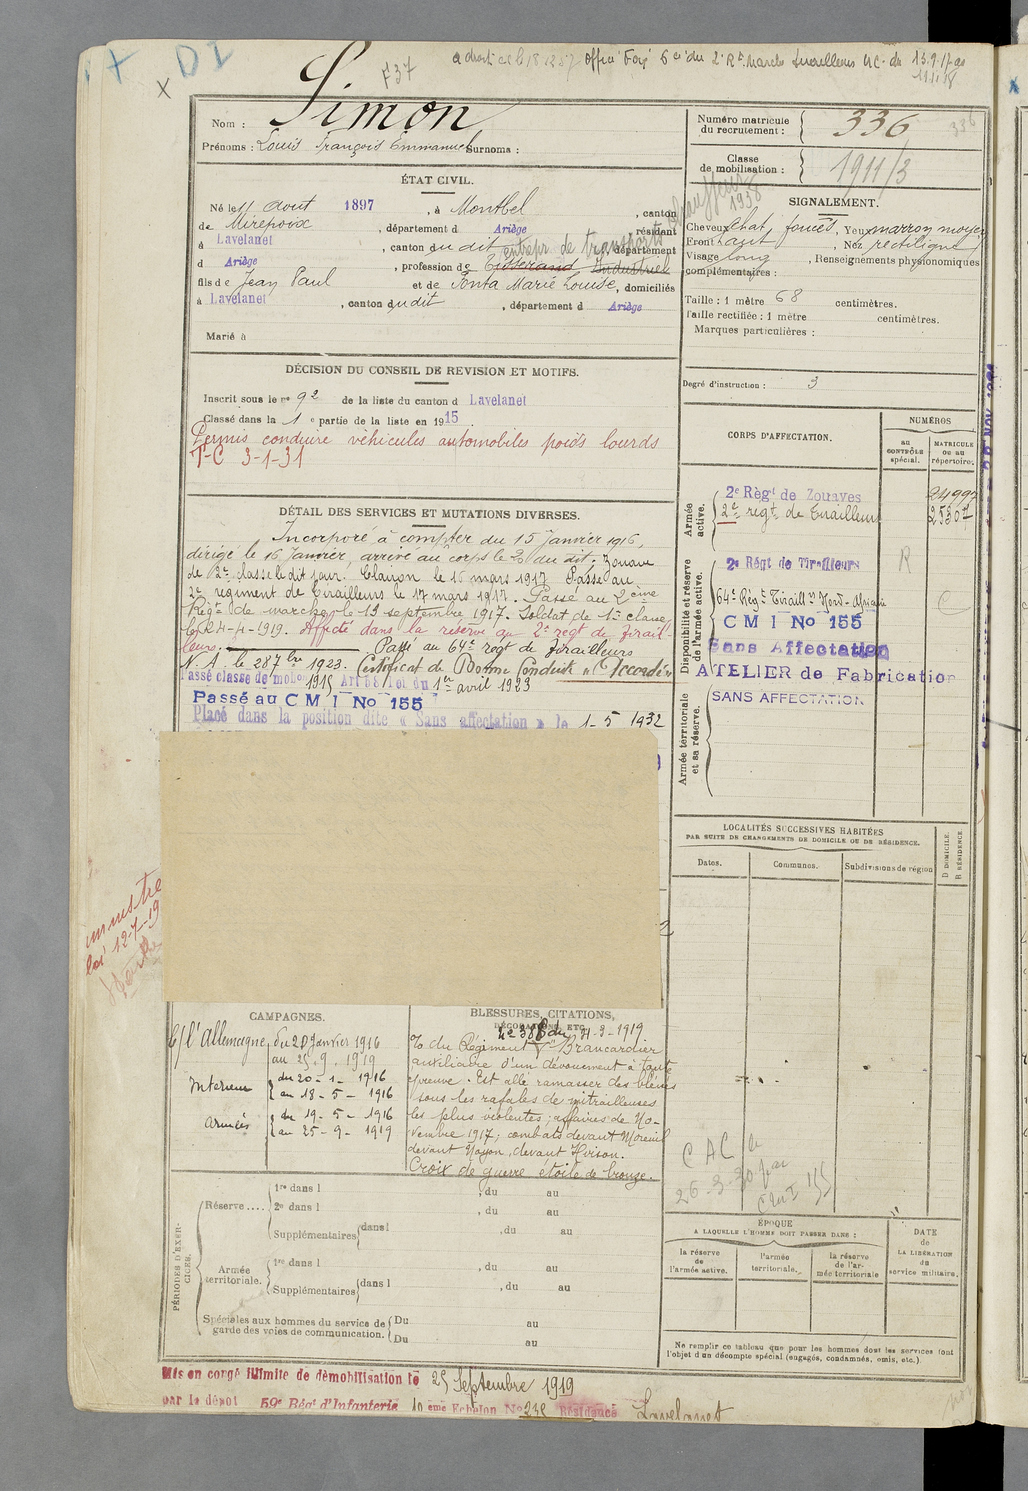 X D I
X
F37
a droit 18 1287 5e du 2e Rt Marche Tirailleurs UC. du 13.9.17 au
11.11.18
Nom : Simon
Prénoms : Louis François Emmanuel Surnoms :
Numéro matricule
du recrutement : 336
336
Classe
de mobilisation : 1911/3
ÉTAT CIVIL.
Né le 11 aout 1897, à Montbel, canton
de Mirepoix, département d Ariège, résidant
à Lavelanet, canton du dit, département
entrepr de transports
Chauffeur
1938
d Ariège, profession de Tisserand, Industriel
fils de Jean Paul et de Ponta Marie Louise, domiciliés
à Lavelanet, canton du dit, département d Ariège
Marié à
SIGNALEMENT.
Cheveux chat. foncés, Yeux marron moyen
Front haut, Nez rectiligne
Visage long, Renseignements physionomiques
complémentaires :
Taille : 1 mètre 68 centimètres.
Taille rectifiée : 1 mètre centimètres.
Marques particulières :
Degré d'instruction : 3
DÉCISION DU CONSEIL DE REVISION ET MOTIFS.
Inscrit sous le no 92 de la liste du canton d Lavelanet
Classé dans la 1e partie de la liste en 1915
Permis conduire véhicules automobiles poids lourds
T-C 3-1-31
DÉTAIL DES SERVICES ET MUTATIONS DIVERSES.
Incorporé à compter du 15 Janvier 1916,
dirigé le 16 Janvier, arrivé au corps le 20 du dit. Zouave
de 2e classe le dit jour. le 16 mars 1917 Passé au
2e régiment de Tirailleurs le 17 mars 1917. Passé au 2eme
Régt de marche le 19 septembre 1917. Soldat de 1re classe
le 24-4-1919. Affecté dans la réserve au 2e regt de Tirail-
leurs. Passé au 64e regt de Tirailleurs
N. A. le 28 7bre 1923. Certificat de Bonne Conduite "Accordé"
Passé classe de mobon 1915 Art 58 loi du 1er avril 1923
Passé au C M I No 155
Placé dans la position dite « Sans affectation » le 1-5 1932
CORPS D'AFFECTATION.
NUMÉROS
au
CONTRÔLE
spécial.
MATRICULE
ou au
répertoire.
Armée
active.
2e Régt de Zouaves
2e regt de Tirailleurs
Disponibilité et réserve
de l'armée active.
2e Régt de Tirailleurs
R
64e Régt Tiraillrs Nord-Africain
C
C M I No 155
Sans Affectation
ATELIER de Fabrication
Armée territoriale
et sa réserve.
SANS AFFECTATION
LOCALITÉS SUCCESSIVES HABITÉES
PAR SUITE DE CHANGEMENTS DE DOMICILE OU DE RÉSIDENCE.
Dates.
Communes.
Subdivisions de région
D DOMICILE.
R RÉSIDENCE.
12-7-19
CAMPAGNES.
C/ l'Allemagne du 20 Janvier 1916
au 25.9.1919
Intérieur du 20-1-1916
au 18-5-1916
Armées du 19-5-1916
au 25-9-1919
BLESSURES, CITATIONS,
DÉCORATIONS, ETC.
du 21-3-1919
du Régiment "Brancardier
auxiliaire d'un dévouement à toute
épreuve. Est allé ramasser des blessés
sous les rafales de mitrailleuses
les plus violentes; affaires de No-
vembre 1917; combats devant Moreuil
devant Noyon, devant Hirson.
Croix de guerre étoile de bronze.
C A C
26-3-30
CMI 155
PÉRIODES D'EXER-
CICES.
Réserve ....
1re dans l , du au
2e dans l , du au
Supplémentaires dans l , du au
Armée
territoriale.
1re dans l , du au
Supplémentaires dans l , du au
Spéciales aux hommes du service de
garde des voies de communication.
Du au
Du au
ÉPOQUE
A LAQUELLE L'HOMME DOIT PASSER DANS :
la réserve
de
l'armée active.
l'armée
territoriale.
la réserve
de l'ar-
mée territoriale
DATE
de
LA LIBÉRATION
du
service militaire.
Ne remplir ce tableau que pour les hommes dont les services font
l'objet d'un décompte spécial (engagés, condamnés, omis, etc.)
Mis en congé illimité de démobilisation le 25 Septembre 1919
par le dépôt 59e Régt d'Infanterie 10 eme Echelon No 232 Résidence Lavelanet